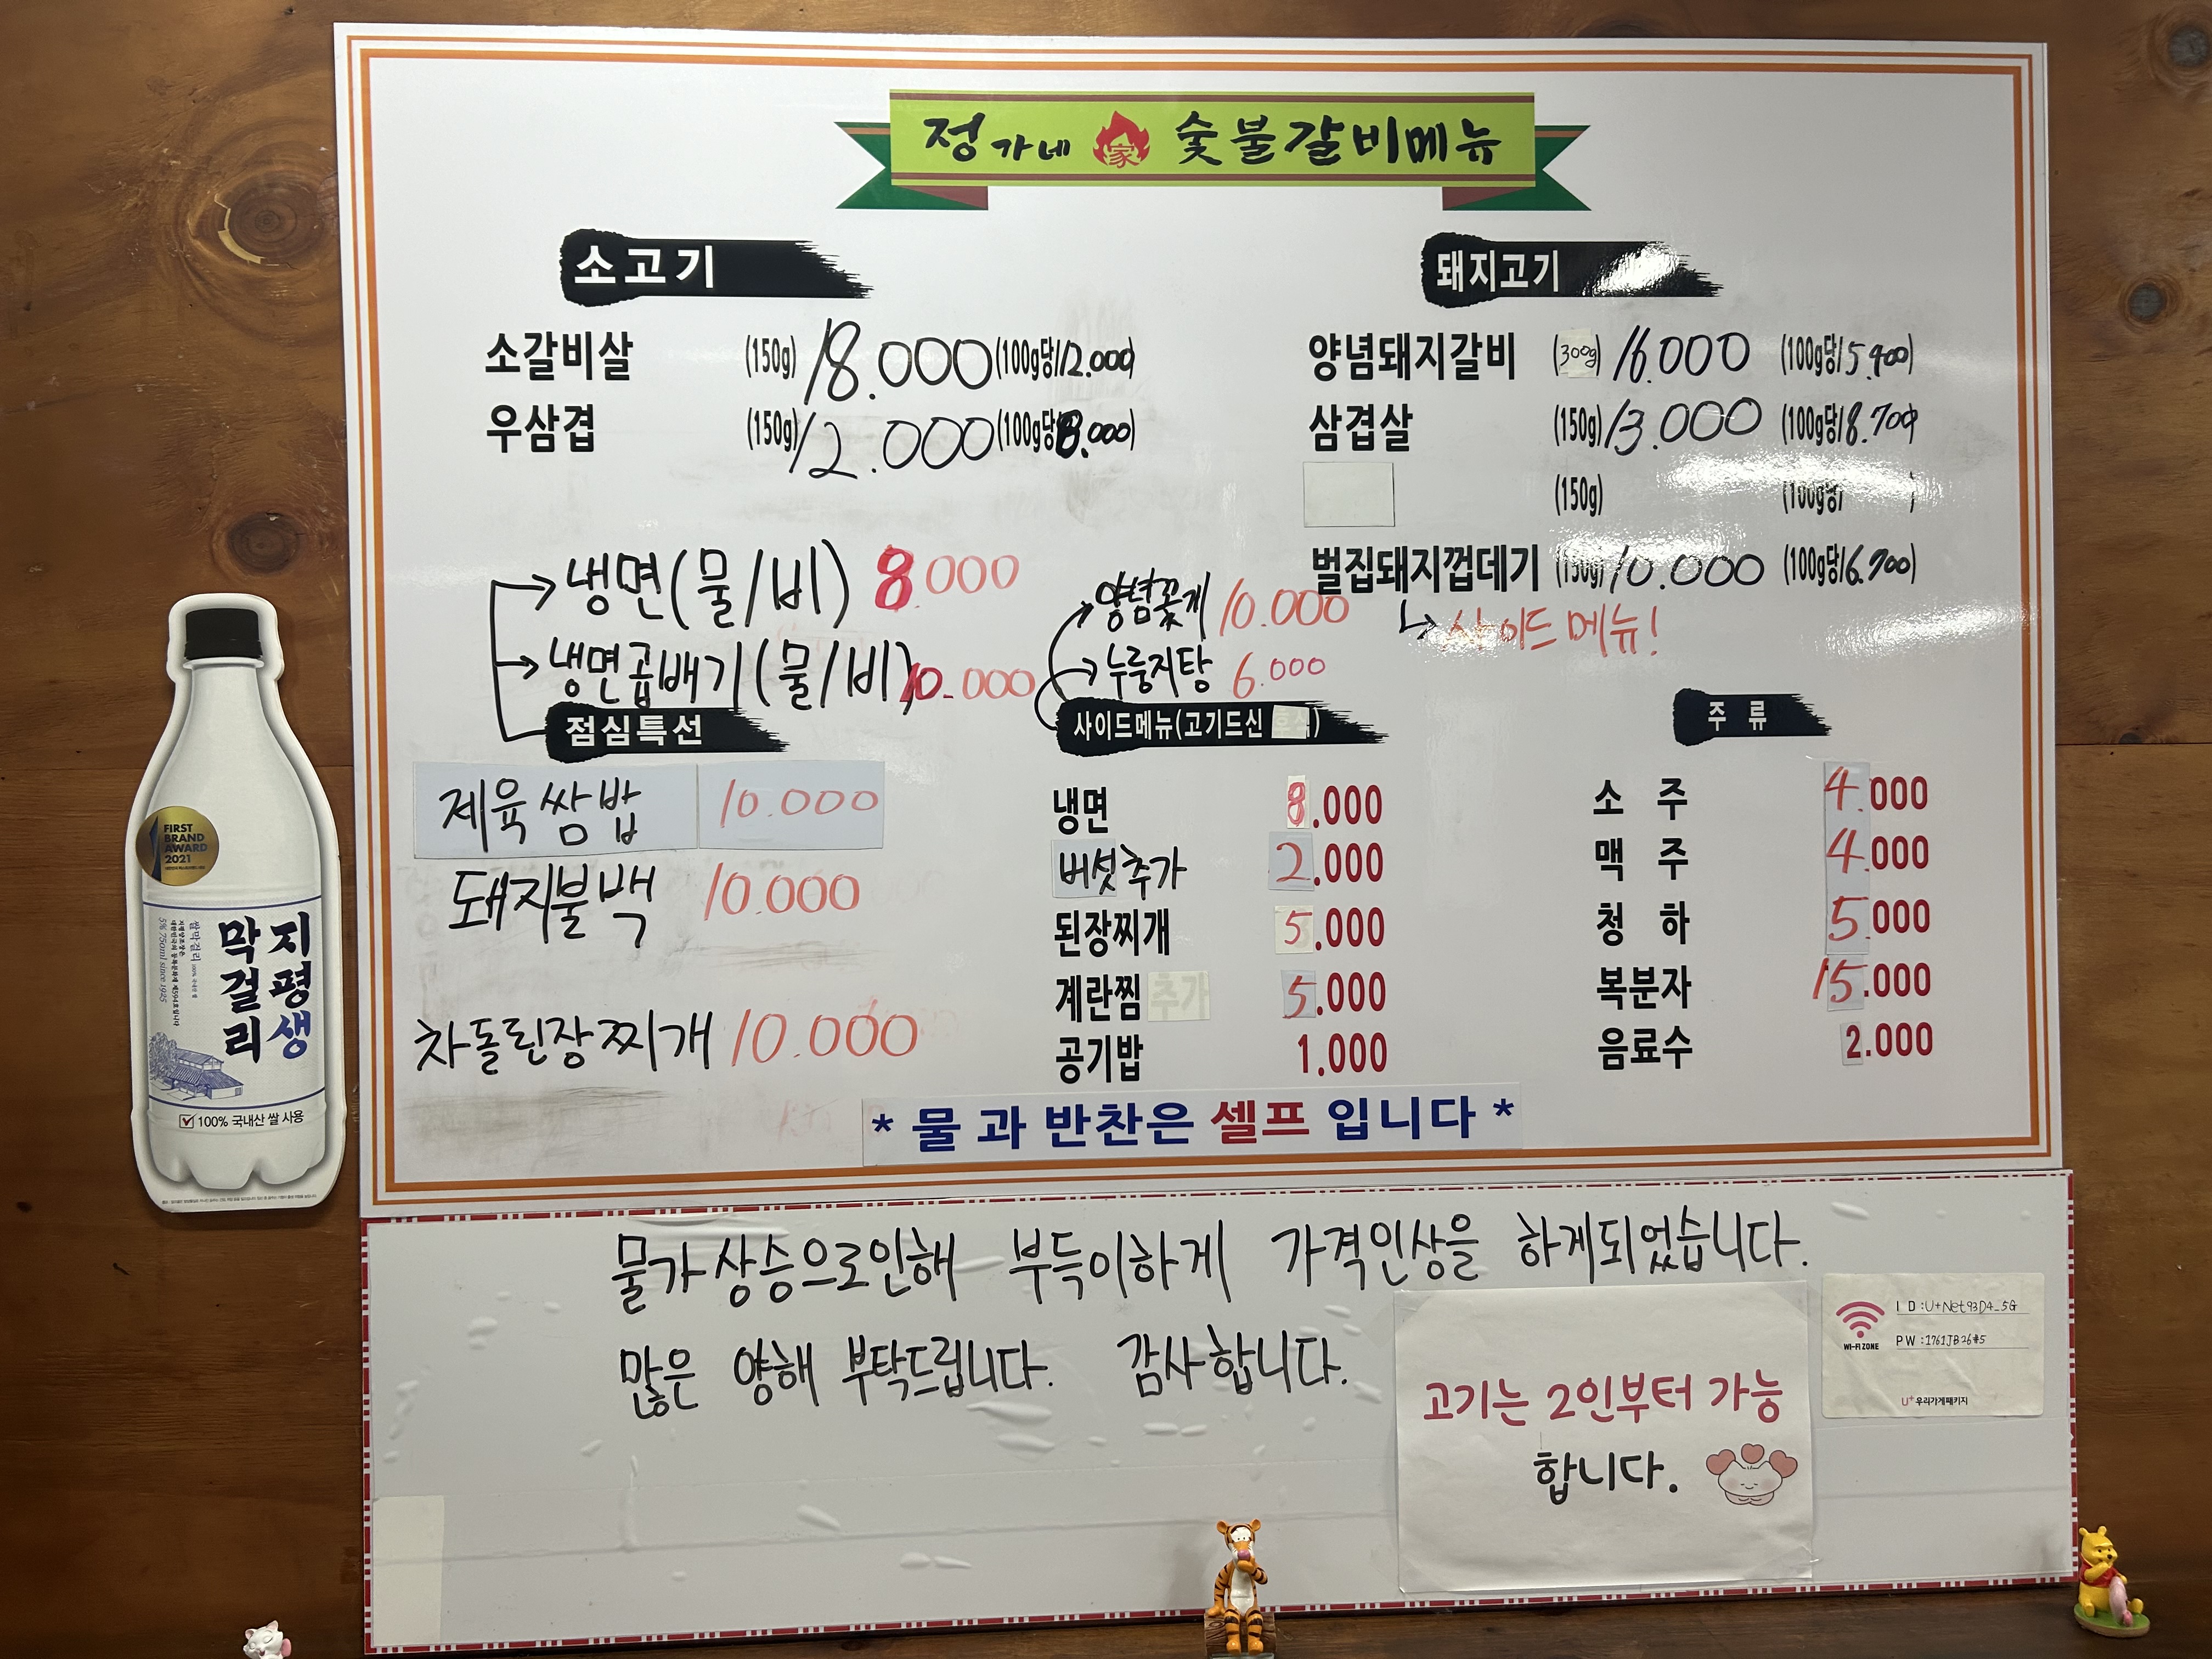 정가네 家 숯불갈비메뉴
소고기
소갈비살 (150g) 18.000 (100g당/12.000)
우삼겹 (150g) 12.000 (100g당8.000)
돼지고기
양념돼지갈비 (300g) 16.000 (100g당/5.400)
삼겹살 (150g) 13.000 (100g당/8.700)
(150g) (100g당/ )
벌집돼지껍데기 (150g) 10.000 (100g당/6.700)
↳ 사이드메뉴!
냉면(물/비) 8.000
냉면곱배기(물/비) 10.000
점심특선
제육쌈밥 10.000
돼지불백 10.000
차돌된장찌개 10.000
양념꽃게 10.000
누룽지탕 6.000
사이드메뉴(고기드신 )
냉면 8.000
버섯추가 2.000
된장찌개 5.000
계란찜 추가 5.000
공기밥 1.000
주 류
소 주 4.000
맥 주 4.000
청 하 5.000
복분자 15.000
음료수 2.000
* 물 과 반찬은 셀프 입니다 *
물가상승으로인해 부득이하게 가격인상을 하게되었습니다.
많은 양해 부탁드립니다. 감사합니다.
고기는 2인부터 가능
합니다.
WI-FI ZONE
I D : U+Net93D4_5G
PW : 1761JB26#5
U+우리가게패키지
FIRST
BRAND
AWARD
2021
지평생
막걸리
쌀막걸리
5% 750ml since 1925
100% 국내산 쌀 사용